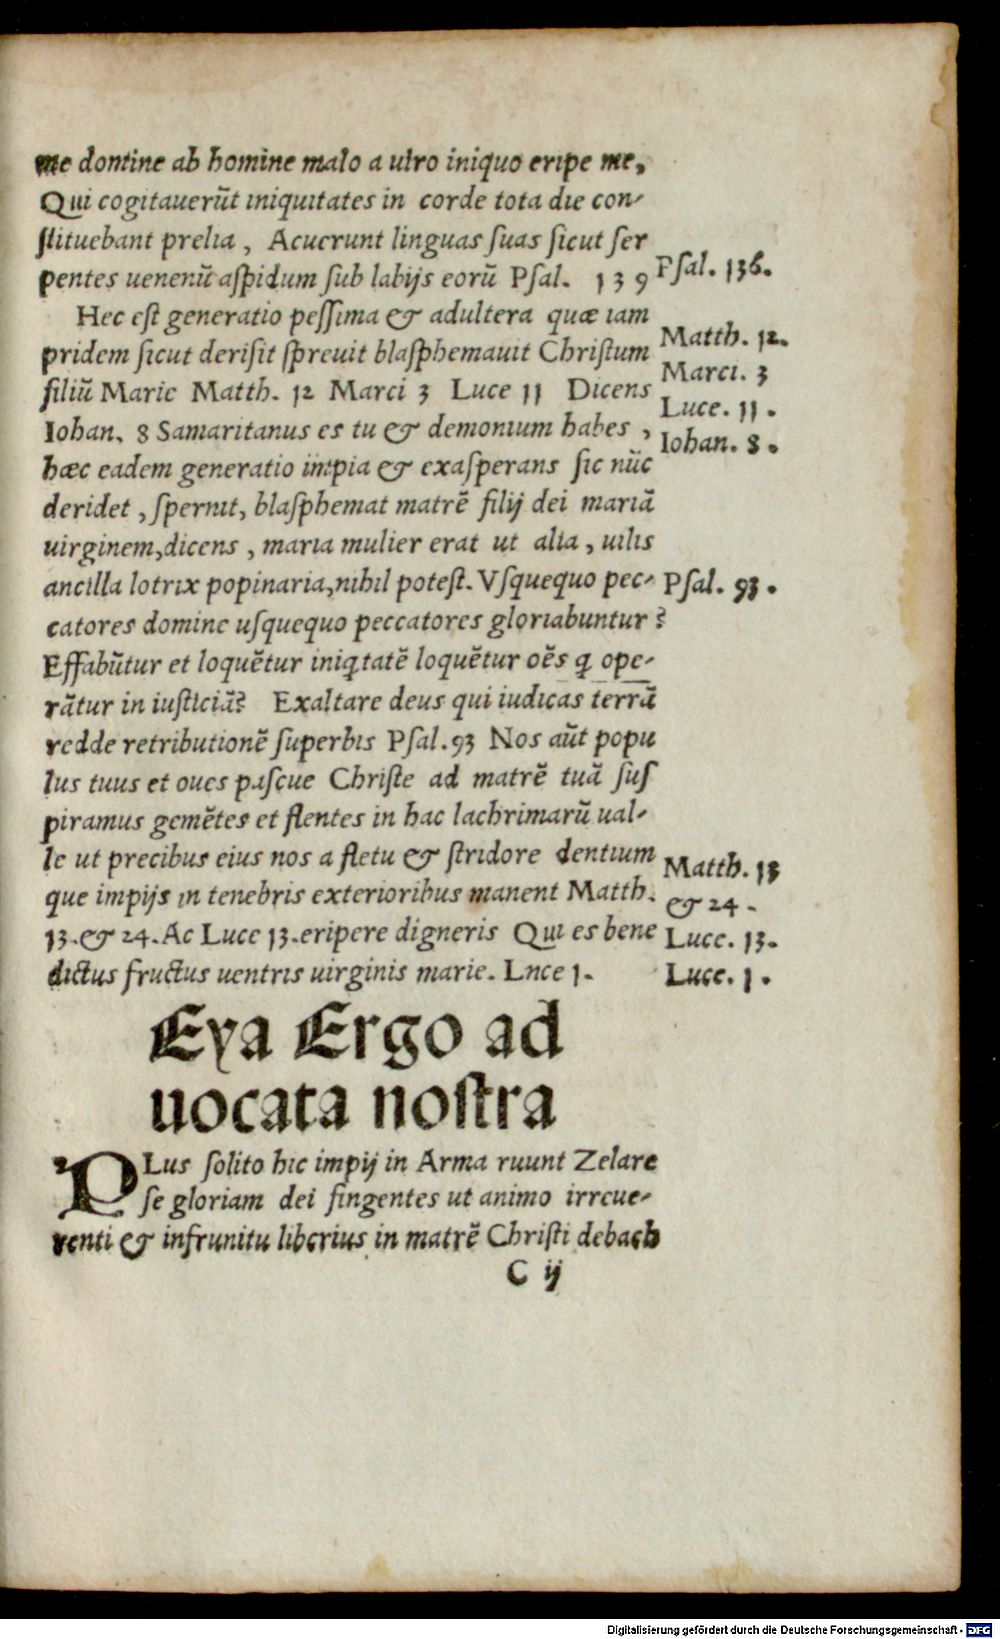 me domine ab homine malo a uiro iniquo eripe me,
Qui cogitauerūt iniquitates in corde tota die con-
ſtituebant prelia, Acuerunt linguas ſuas ſicut ſer
pentes uenenū aſpidum ſub labijs eorū Pſal. 139
Pſal. 136.
Hec eſt generatio peſſima & adultera quæ iam
pridem ſicut deriſit ſpreuit blaſphemauit Chriſtum
Matth. 12.
filiū Marie Matth. 12 Marci 3 Luce 11 Dicens
Marci. 3
Luce. 11.
Iohan. 8 Samaritanus es tu & demonium habes,
Iohan. 8.
hæc eadem generatio impia & exaſperans ſic nūc
deridet, ſpernit, blaſphemat matrē filij dei mariā
uirginem,dicens, maria mulier erat ut alia, uilis
ancilla lotrix popinaria,nihil poteſt. Vſquequo pec-
Pſal. 93.
catores domine uſquequo peccatores gloriabuntur?
Effabūtur et loquētur iniꝗtatē loquētur oēs ꝗ ope-
rātur in iuſticiā? Exaltare deus qui iudicas terrā
redde retributionē ſuperbis Pſal.93 Nos aūt popu
lus tuus et oues paſcue Chriſte ad matrē tuā ſuſ
piramus gemētes et flentes in hac lachrimarū ual-
le ut precibus eius nos a fletu & ſtridore dentium
Matth. 13
que impijs in tenebris exterioribus manent Matth.
& 24.
13.& 24.Ac Luce 13.eripere digneris Qui es bene
Luce. 13.
dictus fructus uentris uirginis marie. Lnce 1.
Luce. 1.
Eya Ergo ad
uocata noſtra
PLus ſolito hic impij in Arma ruunt Zelare
ſe gloriam dei fingentes ut animo irreue-
renti & infrunitu liberius in matrē Chriſti debach
C ij
Digitalisierung gefördert durch die Deutsche Forschungsgemeinschaft - DFG